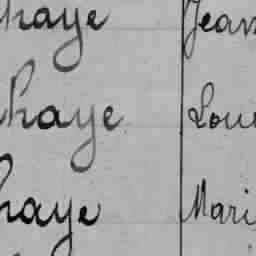 haye Jean
haye Loui
haye Mari